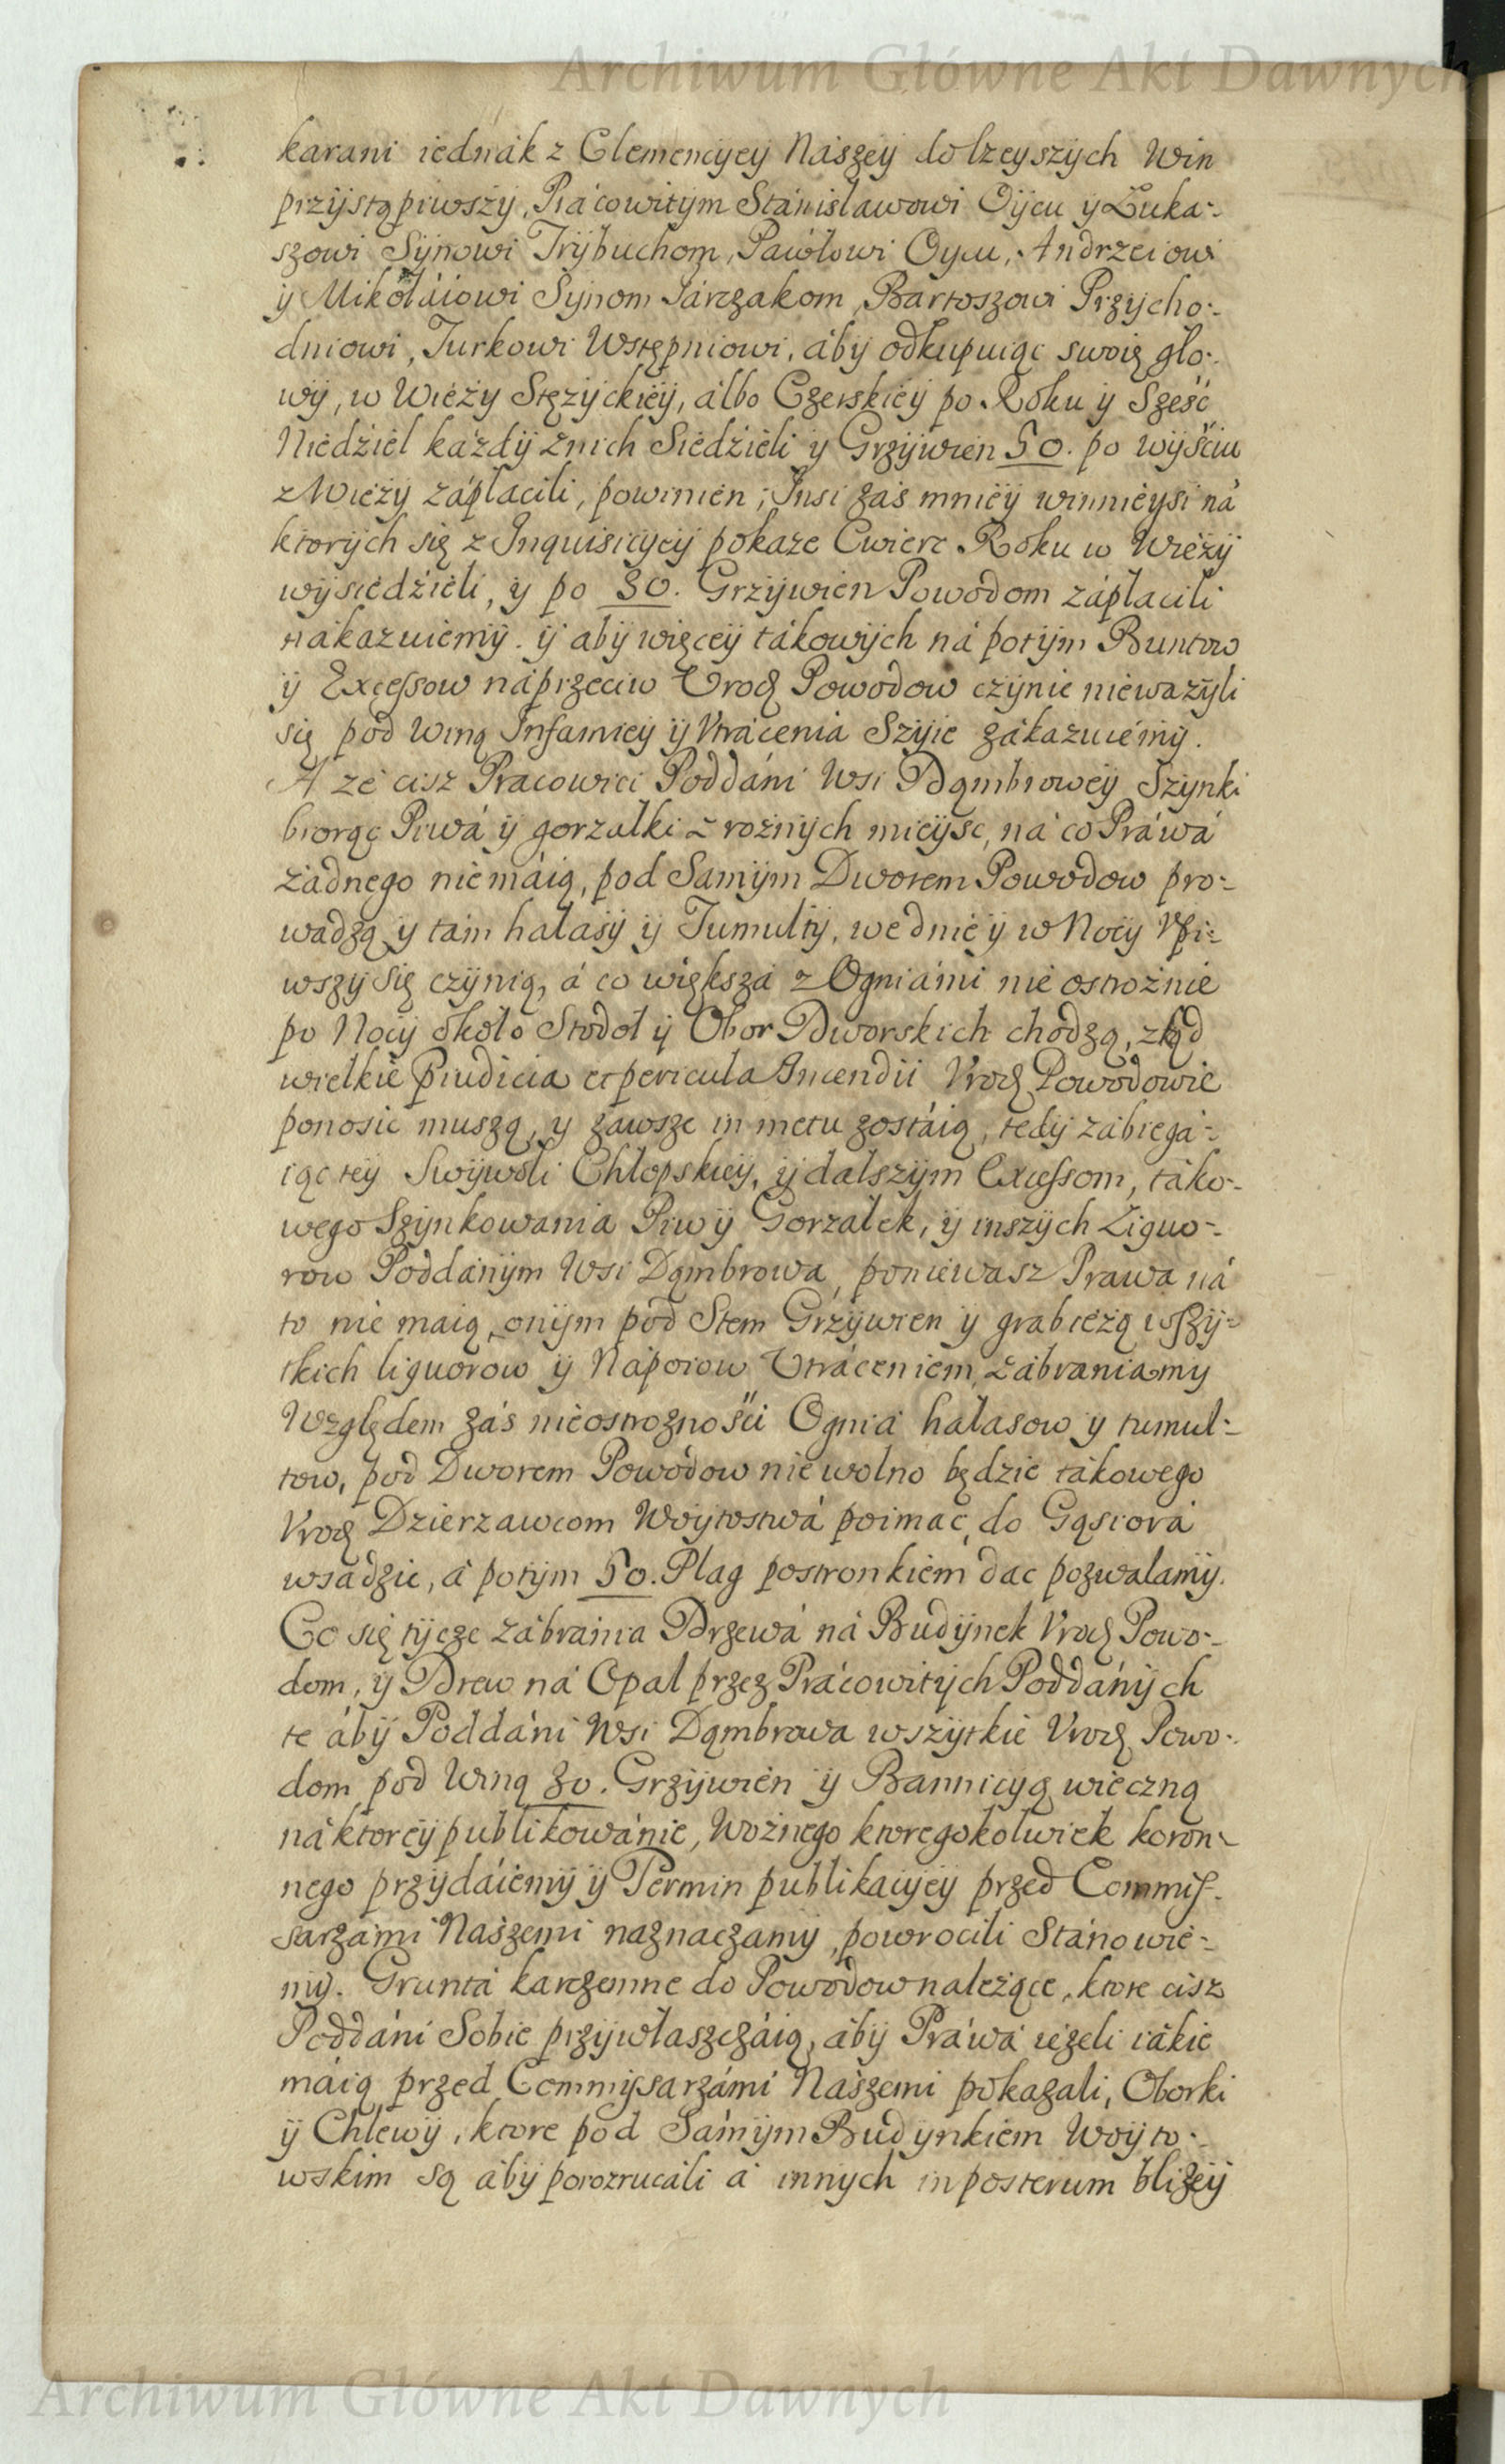 Archiwum Główne Akt Dawnych
karani iednák z Clemencÿeÿ Nászeÿ do lzeyszÿch Win
przÿstąpiwszÿ, Prácowitÿm Stánisławowi Oÿcu ÿ Łuka-
szowi Sÿnowi Trÿbuchom, Páwłowi Oycu, Andrzeiowi
ÿ Mikołáiowi Sÿnom Járczakom, Bartoszowi Przÿcho-
dniowi, Jurkowi Wstępniowi, ábÿ odkupuiąc swoię gło-
wÿ, w Wieżÿ Stęzÿckieÿ, álbo Czerskieÿ po Roku ÿ Sześć
Niedźiel każdÿ znich Siedźieli ÿ Grzÿwien 50. po wÿśćiu
z Wieżÿ zápłacili, powinien; Insi záś mnieÿ winnieÿsi ná
ktorÿch się z Inquisicÿeÿ pokaze Cwierc Roku w Wieżÿ
wÿsiedźieli, ÿ po 30. Grzÿwien Powodom zápłacili
nákazuiemÿ. ÿ abÿ więceÿ tákowÿch ná potÿm Buntow
ÿ Excessow náprzeciw Urodz Powodow czÿnic niewazÿli
się pod winą Infamieÿ ÿ Vtrácenia Szÿie zákazuiemÿ.
A ze cisz Pracowici Poddáni Wsi Dąmbroweÿ Szÿnki
biorąc Piwá ÿ gorzałki z roznÿch mieÿsc, ná co Práwá
żadnego niemáią, pod Samÿm Dworem Powodow pro-
wadzą ÿ tam hałasÿ ÿ Tumultÿ, wednie ÿ w Nocÿ Vpi-
wszÿ się czÿnią, á co większa z Ogniámi nie ostrożnie
po Nocÿ około Stodoł ÿ Obor Dworskich chodzą, zkąd
wielkie Piudicia et pericula Incendii Vrodz Powodowie
ponosic muszą, ÿ zawsze in metu zostáią, tedÿ zábiegá-
iąc teÿ Swÿwoli Chłopskieÿ, ÿ dalszÿm Excessom, táko-
wego Szÿnkowania Piw ÿ Gorzałek, ÿ inszÿch Liquo-
row Poddánÿm Wsi Dąmbrowa, poniewasz Prawa ná
to nie maią, onÿm pod Stem Grzÿwien ÿ grabieżą wszÿ-
tkich liquorow ÿ Nápoiow Utráceniem, zábraniamy
Względem záś nieostroznośći Ognia hałasow ÿ tumul-
tow, pod Dworem Powodow nie wolno będzie tákowego
Vrodz Dzierzawcom Woÿtostwá poimac, do Gąsiorá
wsadzic, á potÿm 50. Plag postronkiem dac pozwalamÿ.
Co się tÿcze zábrania Drzewá ná Budÿnek Vrodz Powo-
dom, ÿ Drew ná Opał przez Prácowitÿch Poddánÿch
te ábÿ Poddáni Wsi Dąmbrowa wszÿtkie Vrodz Powo-
dom pod Winą 30. Grzÿwien ÿ Bannicÿą wieczną
náktoreÿ publikowánie, Woźnego ktoregokolwiek koron-
nego przÿdáiemÿ ÿ Termin publikacÿeÿ przed Commis-
sarzámi Naszemi naznaczamÿ, powrocili Stánowie-
mÿ. Grunta karczemne do Powodow należące, ktore cisz
Poddáni Sobie przÿwłaszczáią, ábÿ Práwá ieżeli iákie
máią przed Commissarzámi Naszemi pokazali, Oborki
ÿ Chlewÿ, ktore pod Sámÿm Budÿnkiem Woÿto-
wskim są ábÿ porozrucáli á innÿch inposterum bliżeÿ
Archiwum Główne Akt Dawnych